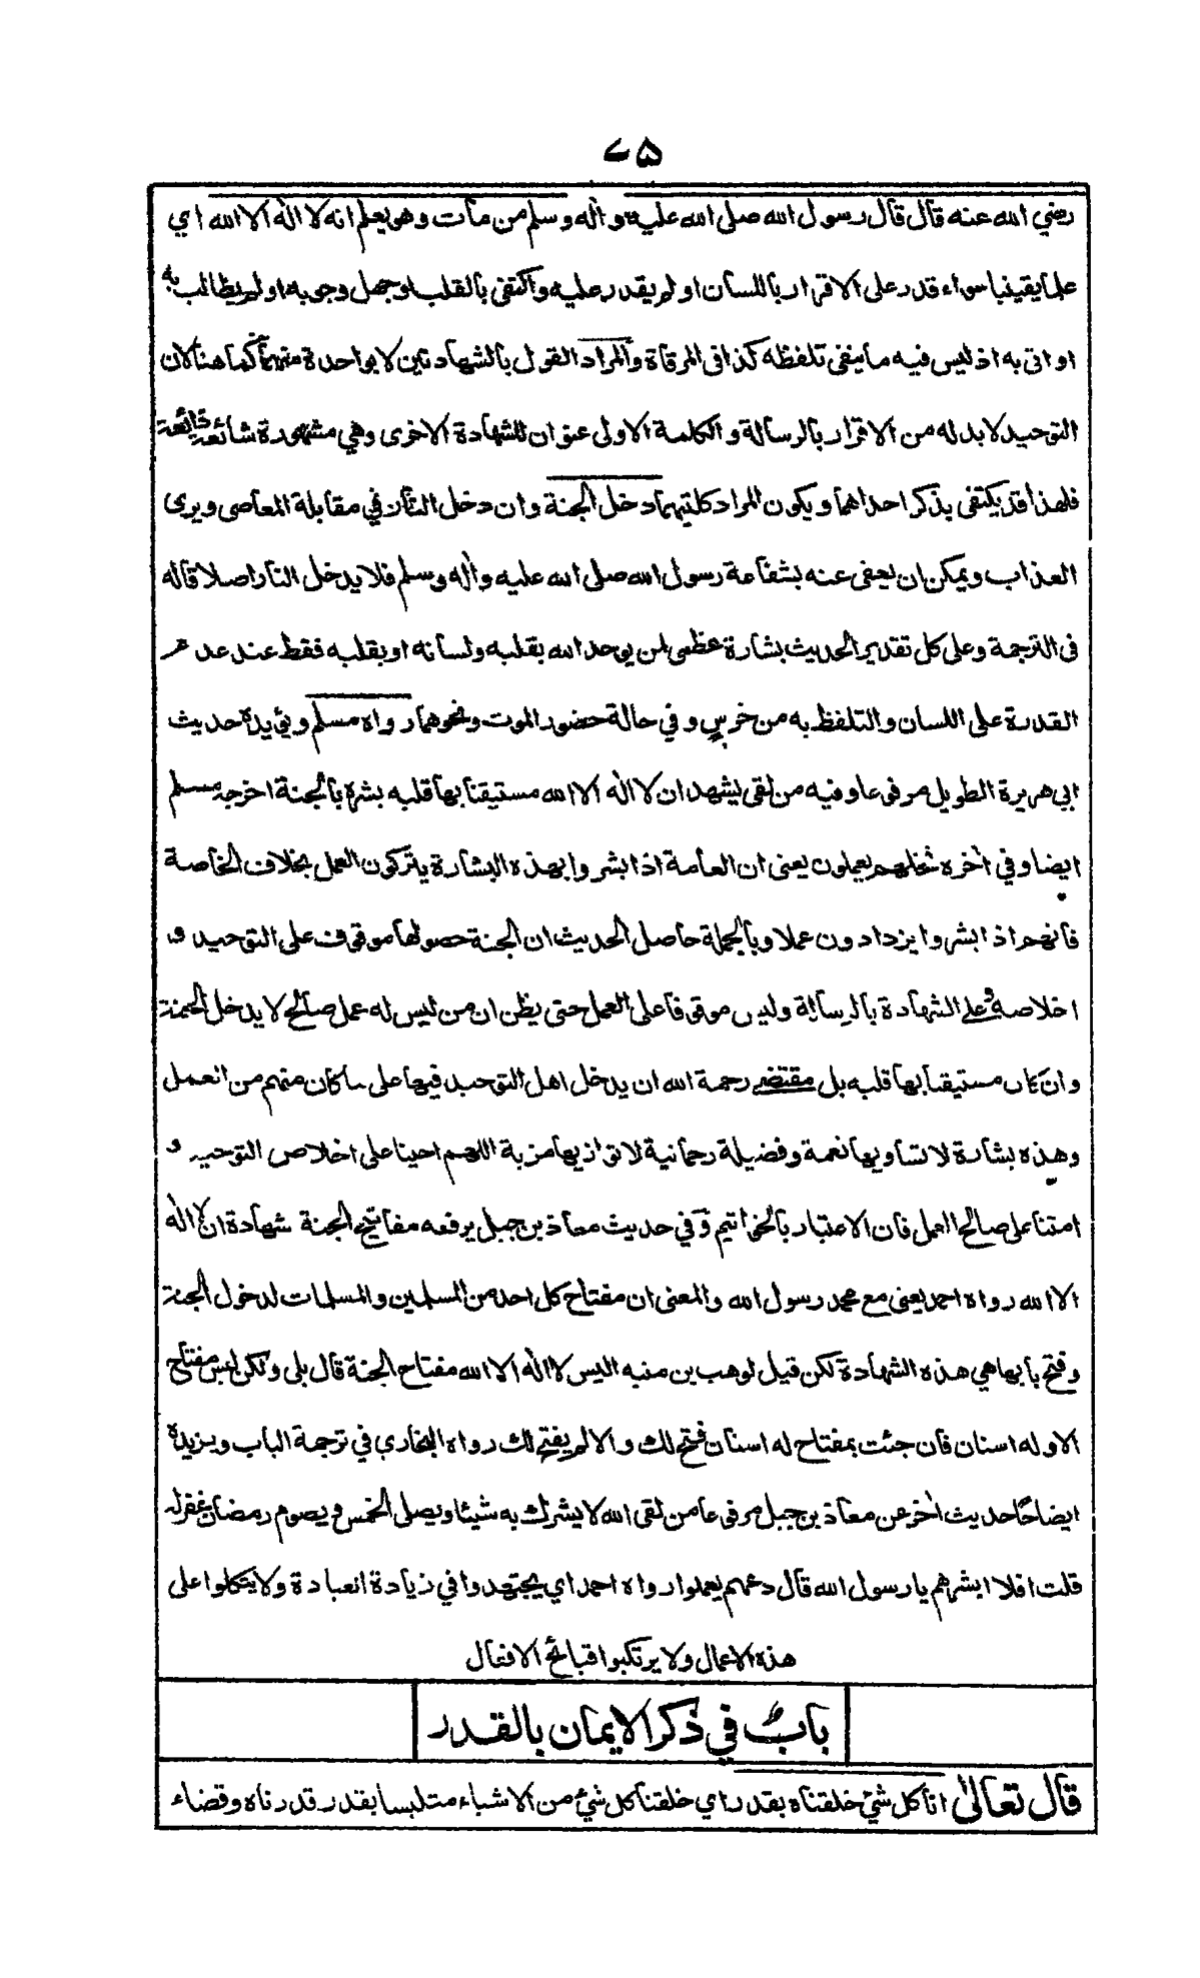 ٦٥
رضي الله عنه قال قال رسول الله صلى الله عليه واله وسلم من مات وهو يعلم انه لا اله الا الله اي
علما يقينيا سواء قدر على الاقرار باللسان او لم يقدر عليه واكتفى بالقلب او جهل وجوبه او لم يطالب به
او اتى به اذ ليس فيه ما ينفى تلفظه كذا فى المرقاة والمراد القول بالشهادتين لا بواحدة منهما كما هنا لان
التوحيد لا بد له من الاقرار بالرسالة والكلمة الاولى عنوان للشهادة الاخرى وهي مشهورة شائعة ذائعة
فلهذا قد يكتفى بذكر احداهما ويكون المراد كلتيهما دخل الجنة وان دخل النار في مقابلة المعاصى ويرى
العذاب ويمكن ان يعفى عنه بشفاعة رسول الله صلى الله عليه واله وسلم فلا يدخل النار اصلا قاله
فى الترجمة وعلى كل تقدير الحديث بشارة عظمى لمن يوحد الله بقلبه ولسانه او بقلبه فقط عند عدم
القدرة على اللسان والتلفظ به من خرس وفي حالة حضور الموت ونحوهما رواه مسلم ويؤيده حديث
ابي هريرة الطويل مرفوعا وفيه من لقى يشهد ان لا اله الا الله مستيقنا بها قلبه بشره بالجنة اخرجه مسلم
ايضا وفي اخره فخلهم يعملون يعنى ان العامة اذا بشروا بهذه البشارة يتركون العمل بخلاف الخاصة
فانهم اذا بشروا يزدادون عملا وبالجملة حاصل الحديث ان الجنة حصولها موقوف على التوحيد و
اخلاصه وعلى الشهادة بالرسالة وليس موقوفا على العمل حتى يظن ان من ليس له عمل صالح لا يدخل الجنة
وان كان مستيقنا بها قلبه بل مقتضى رحمة الله ان يدخل اهل التوحيد فيها على ما كان منهم من العمل
وهذه بشارة لا تساويها نعمة وفضيلة رحمانية لا توازيها مزية اللهم احينا على اخلاص التوحيد و
امتنا على صالح العمل فان الاعتبار بالخواتيم وفي حديث معاذ بن جبل يرفعه مفاتيح الجنة شهادة ان لا اله
الا الله رواه احمد يعنى مع محمد رسول الله والمعنى ان مفتاح كل احد من المسلمين والمسلمات لدخول الجنة
وفتح بابها هي هذه الشهادة لكن قيل لوهب بن منبه اليس لا اله الا الله مفتاح الجنة قال بلى ولكن ليس مفتاح
الا وله اسنان فان جئت بمفتاح له اسنان فتح لك والا لم يفتح لك رواه البخاري في ترجمة الباب ويزيده
ايضاحا حديث اخر عن معاذ بن جبل مرفوعا من لقى الله لا يشرك به شيئا ويصلى الخمس ويصوم رمضان غفر له
قلت افلا ابشرهم يا رسول الله قال دعهم يعملوا رواه احمد اي يجتهدوا في زيادة العبادة ولا يتكلوا على
هذه الاعمال ولا يرتكبوا قبائح الافعال
باب في ذكر الايمان بالقدر
قال تعالى انا كل شئ خلقناه بقدر اي خلقنا كل شئ من الاشياء متلبسا بقدر قدرناه وقضاء